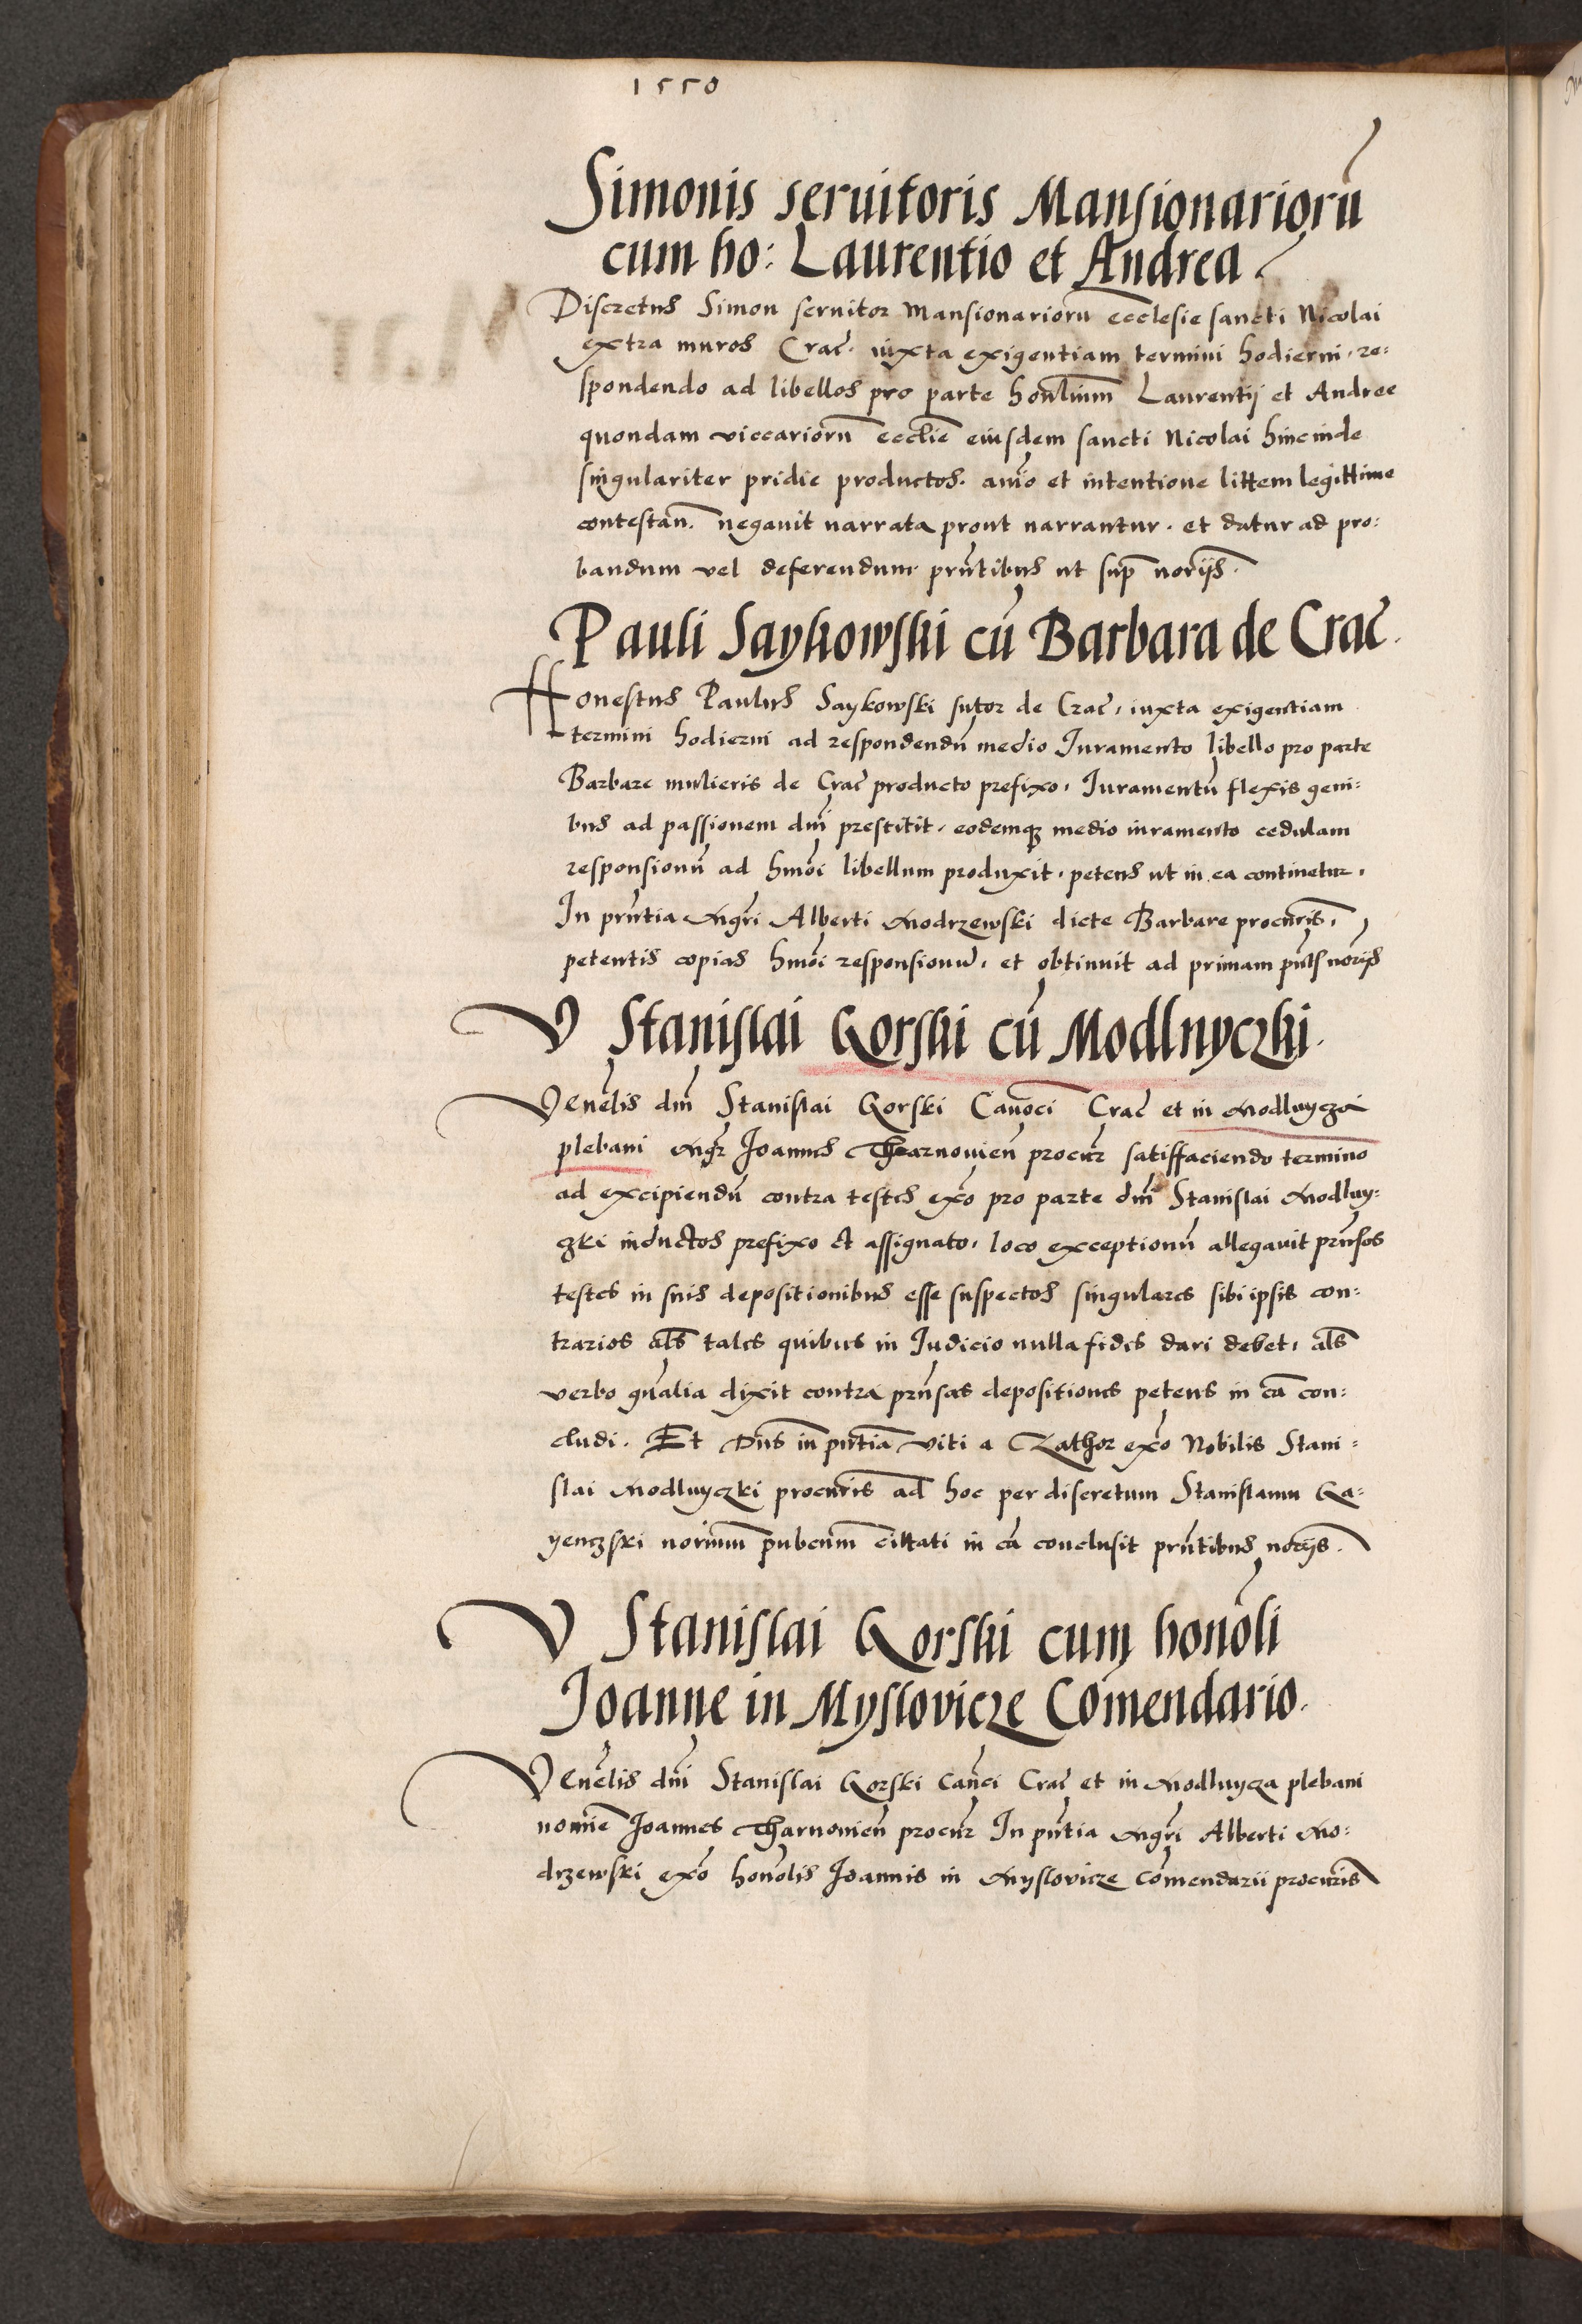 1550
Simonis seruitoris Mansionariorū
cum ho: Laurentio et Andrea
Discretus Simon seruitor Mansionariorū ecclesie sancti Nicolai
extra muros Crac̄. iuxta exigentiam termini hodierni, re:
spondendo ad libellos pro parte honlium̄ Laurentij et Andree
quondam viccariorū eccl̄ie eiusdem sancti Nicolai hincinde
singulariter pridie productos. anīo et intentione littem legittime
contestan̄. negauit narrata prout narrantur. et datur ad pro:
bandum vel deferendum. prn̄tibus ut sup̄ norijs̄.
Pauli Saykowski cū Barbara de Crac̄.
Honestus Paulus Saykowski sutor de Crac̄, iuxta exigentiam
termini hodierni ad respondendū medio Iuramento libello pro parte
Barbare mulieris de Crac̄ producto prefixo, Iuramentū flexis geni:
bus ad passionem dnī prestitit, eodemq3 medio iuramento cedulam
responsionū ad hmōi libellum produxit, petens ut in ea continetur,
In prn̄tia Mgrī Alberti Modrzewski dicte Barbare procuris̄,
petentis copias hmōi responsionū, et obtinuit ad primam pn̄ts norijs̄
V Stanislai Gorski cū Modlnyczki.
Venēlis dnī Stanislai Gorski Canoci̅ Crac̄ et in Modlnycza
plebani Mgr̄ Ioannes Tharnouien̄ procur̄ satiffaciendo termino
ad excipiendū contra testes exō pro parte dnī Stanislai Modlny:
czki inductos prefixo et assignato, loco exceptionū allegauit prn̄sos
testes in suis depositionibus esse suspectos singulares sibi ipsis con:
trarios als̄ tales quibus in Iudicio nulla fides dari debet, als̄
verbo gn̄alia dixit contra prn̄sas depositiones petens in cā con:
cludi. Et Dns̄ in pn̄tia̅ Viti a Zathor exō Nobilis Stani:
slai Modlnyczki procuris̄ ad hoc per discretum Stanislaum Ga:
yenczski norium̄ pubcum̄ cittati in cā conclusit prn̄tibus norijs̄.
V Stanislai Gorski cum honōli
Ioanne in Myslovicze Com̄endario.
Venēlis dnī Stanislai Gorski Can̄ci Crac̄ et in Modlnycza plebani
nomīe Ioannes Tharnouien̄ procur̄ In pn̄tia Mgrī Alberti Mo:
drzewski exō honōlis Ioannis in Myslovicze Com̄endarii procuris̄